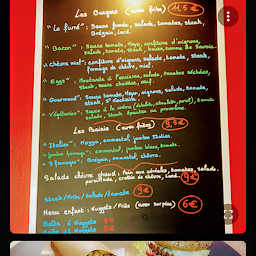 Les Burgers (avec frites) 11,5€
"Le fumé" : Sauce fumée, salade, tomates, steak,
"Bacon" : Sauce tomate, Mayo, confiture d'oignons,
salade, tomate, steak, bacon, tomme de Savoie.
"Chèvre miel" : confiture d'oignons, salade, tomate, steak,
fromage de chèvre, miel.
"Eggs" : Moutarde à l'ancienne, salade, tomates séchées,
steak, cheddar, œuf.
"Gourmand" : Sauce tomate, Mayo, oignons, salade, tomate,
steak,
"Végétarien" : Sauce à la crème
salade, steak
Les Paninis (avec frites) 9,5€
"Italien" : Mozza, emmental, jambon Italien.
emmental, jambon blanc, tomate.
"3 fromages" : emmental, chèvre.
Salade chèvre chaud : Pain aux céréales, tomates, salade,
9€
Steak/Frite/Salade/tomate 9€
Menu enfant : Nuggets / Frite (avec surprise) 6€
Boîte 6 Nuggets 5€
Boîte Nuggets